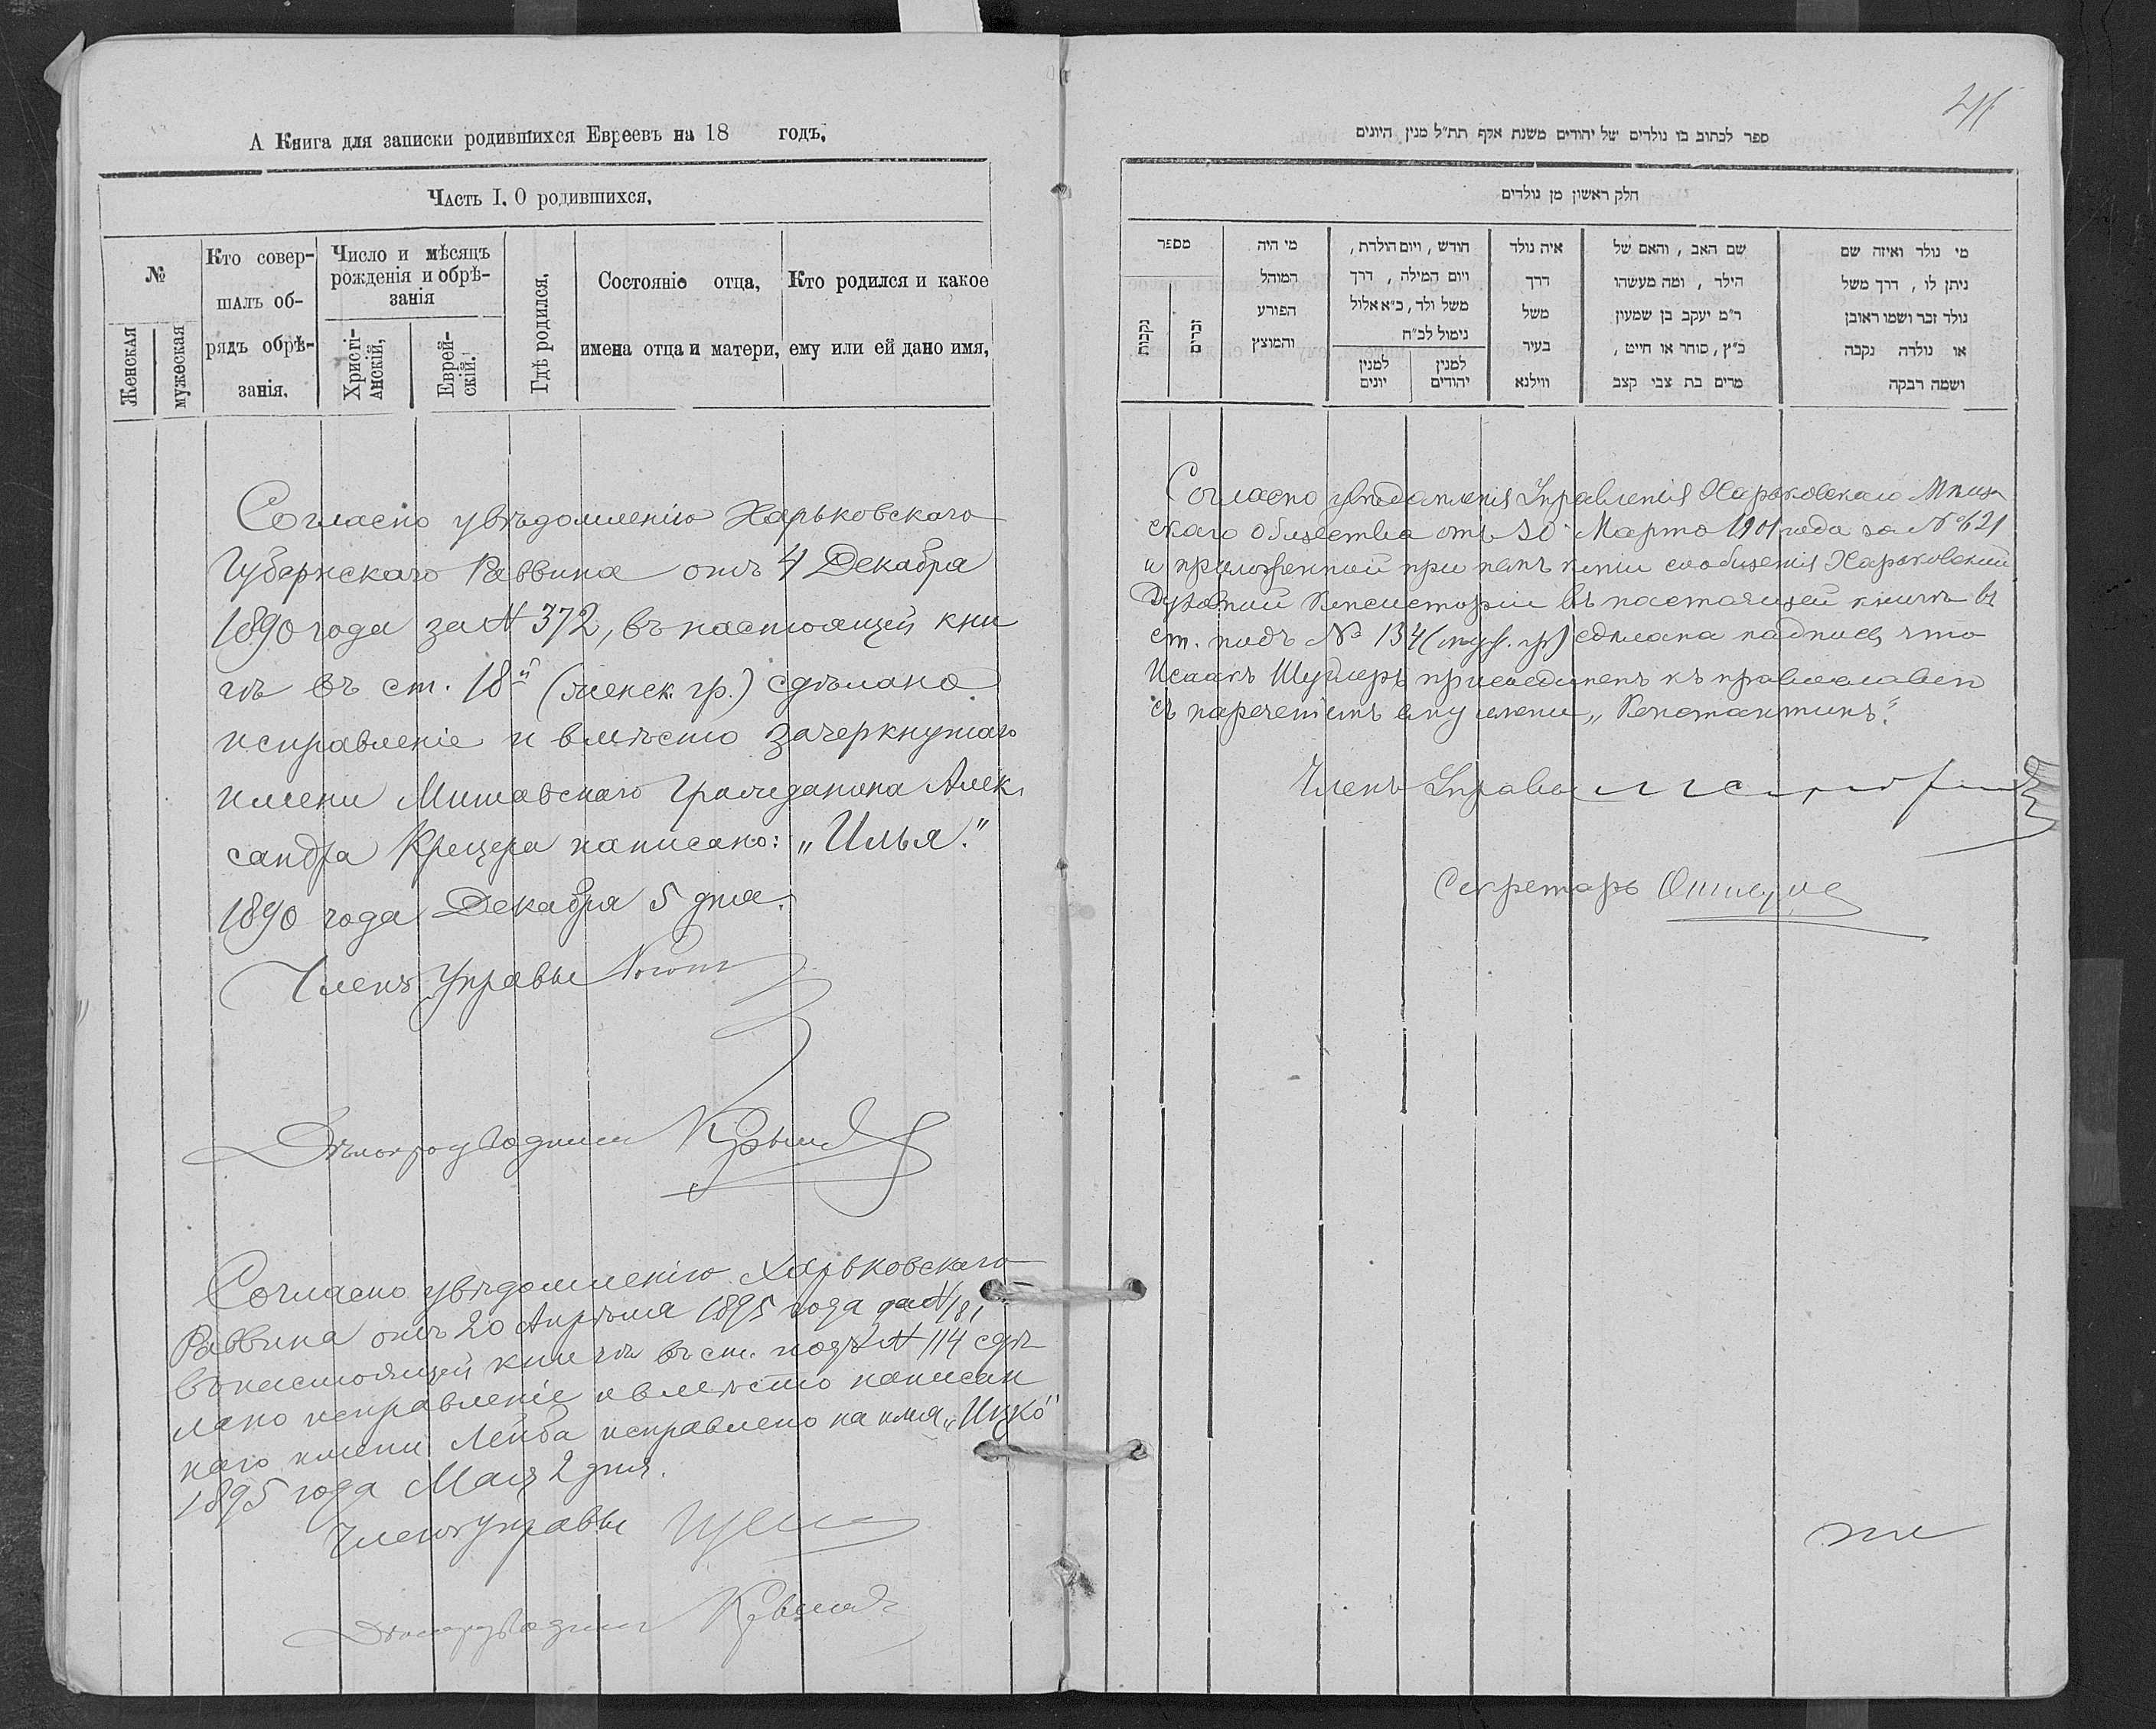 А Книга для записки родившихся Евреевъ на 18 годъ.
Часть I. О родившихся.
№
Женская
мужеская
Кто совер-
шалъ об-
рядъ обрѣ-
занія.
Число и мѣсяцъ
рожденія и обрѣ-
занія
Христі-
анскій,
Еврей-
скій.
Гдѣ родился.
Состояніе отца,
имена отца и матери,
Кто родился и какое
ему или ей дано имя,
Согласно увѣдомленію Харьковскаго
Губернскаго Раввина отъ 4 Декабря
1890 года за № 372, въ настоящей кни
гѣ въ ст. 18й (женск. гр.) сдѣлано
исправленіе и вмѣсто зачеркнутаго
имени Митавскаго Гражданина Алек
сандра Крецера написано: „Илья".
1890 года Декабря 5 дня.
Членъ Управы
Дѣлопроизводитель
Согласно увѣдомленію Харьковскаго
Раввина отъ 20 Апрѣля 1895 года за № 181
въ настоящей книгѣ въ ст. подъ № 114 сдѣ
лано исправленіе и вмѣсто написан
наго имени Лейба исправлено на имя „Ицко"
1895 года Мая 2 дня.
Членъ Управы
Дѣлопроизводитель
ספר לכתוב בו נולדים של יהודים משנת אלף תת״ל מנין היונים
חלק ראשון מן נולדים
מספר
נקבות
זכרים
מי היה
המוהל
הפורע
והמוצץ
חודש, ויום הולדת,
ויום המילה, דרך
משל ולד, כ״א אלול
נימול לכ״ח
למנין
יונים
למנין
יהודים
איה נולד
דרך
משל
בעיר
ווילנא
שם האב, והאם של
הילד, ומה מעשהו
ר״מ יעקב בן שמעון
כ״ץ, סוחר או חייט,
מרים בת צבי קצב
מי נולד ואיזה שם
ניתן לו, דרך משל
נולד זכר ושמו ראובן
או נולדה נקבה
ושמה רבקה
Согласно увѣдомленія Управленія Харьковскаго Мѣщан
скаго Общества отъ 30 Марта 1901 года за № 621
и приложенной при немъ копіи сообщенія Харьковской
Духовной Консисторіи въ настоящей книгѣ въ
ст. подъ № 134 (муж. гр.) сдѣлана надпись, что
Исаакъ присоединенъ къ православію
съ нареченіемъ ему имени „Константинъ".
Членъ Управы
Секретарь